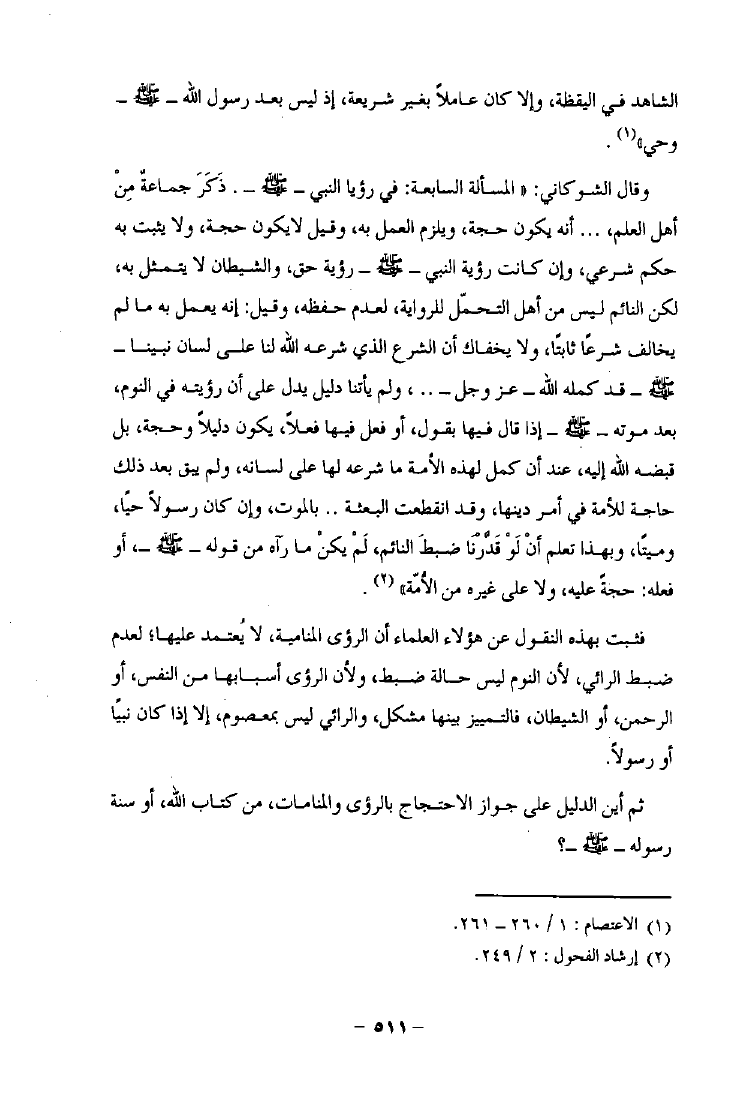 الشاهد في اليقظة، وإلا كان عاملاً بغير شريعة، إذ ليس بعد رسول الله ـ ﷺ ـ
وحي»(١) .
وقال الشوكاني: « المسألة السابعة: في رؤيا النبي ـ ﷺ ـ . ذَكَرَ جماعةٌ مِنْ
أهل العلم، ... أنه يكون حجة، ويلزم العمل به، وقيل لايكون حجة، ولا يثبت به
حكم شرعي، وإن كانت رؤية النبي ـ ﷺ ـ رؤية حق، والشيطان لا يتمثل به،
لكن النائم ليس من أهل التحمّل للرواية، لعدم حفظه، وقيل: إنه يعمل به ما لم
يخالف شرعًا ثابتًا، ولا يخفاك أن الشرع الذي شرعه الله لنا على لسان نبينا ـ
ﷺ ـ قد كمله الله ـ عز وجل ـ .. ، ولم يأتنا دليل يدل على أن رؤيته في النوم،
بعد موته ـ ﷺ ـ إذا قال فيها بقول، أو فعل فيها فعلاً، يكون دليلاً وحجة، بل
قبضه الله إليه، عند أن كمل لهذه الأمة ما شرعه لها على لسانه، ولم يبق بعد ذلك
حاجة للأمة في أمر دينها، وقد انقطعت البعثة .. بالموت، وإن كان رسولاً حيًا،
وميتًا، وبهذا تعلم أنْ لَوْ قَدَّرْنَا ضبطَ النائم، لَمْ يكنْ ما رآه من قوله ـ ﷺ ـ، أو
فعله: حجةً عليه، ولا على غيره من الأُمّة» (٢) .
فثبت بهذه النقول عن هؤلاء العلماء أن الرؤى المنامية، لا يُعتمد عليها؛ لعدم
ضبط الرائي، لأن النوم ليس حالة ضبط، ولأن الرؤى أسبابها من النفس، أو
الرحمن، أو الشيطان، فالتمييز بينها مشكل، والرائي ليس بمعصوم، إلا إذا كان نبيًا
أو رسولاً.
ثم أين الدليل على جواز الاحتجاج بالرؤى والمنامات، من كتاب الله، أو سنة
رسوله ـ ﷺ ـ؟
(١) الاعتصام : ١ / ٢٦٠ ـ ٢٦١.
(٢) إرشاد الفحول : ٢ / ٢٤٩.
– ٥١١ –